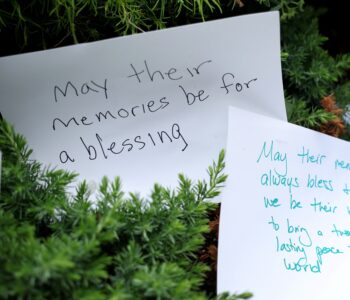 May their
memories be for
a blessing
May their
always bless
we be their
to bring a
lasting peace
world